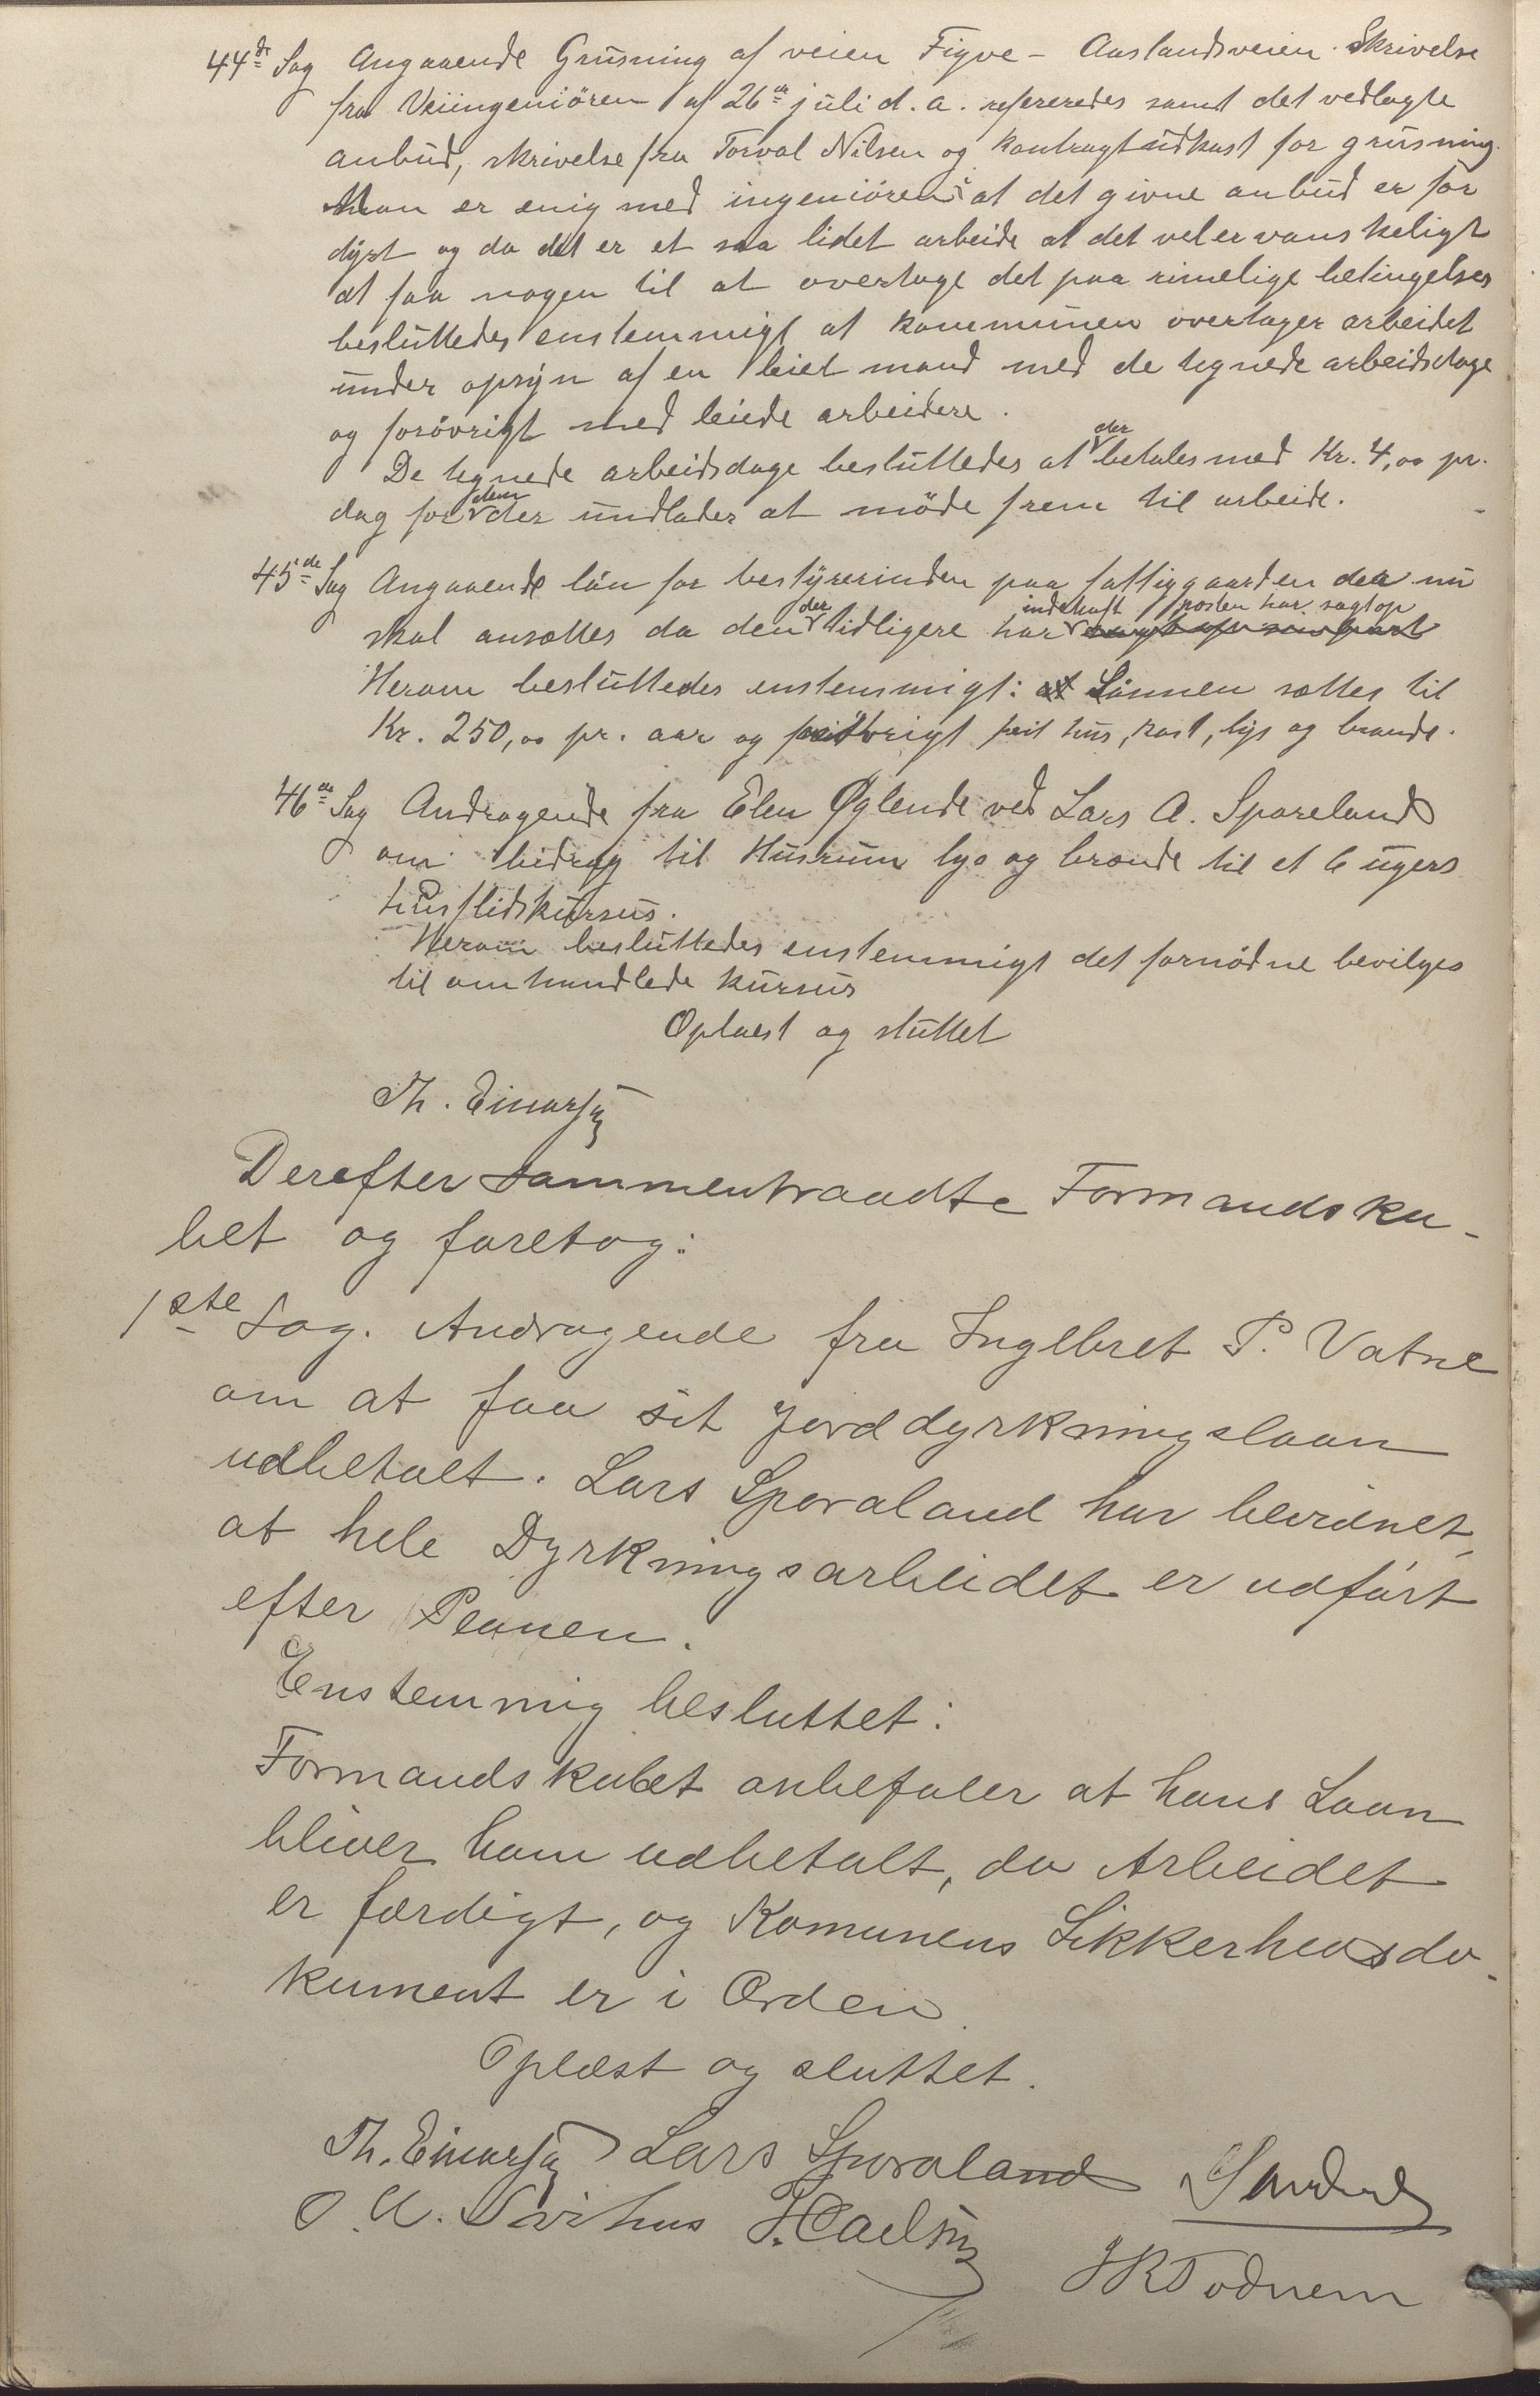 44de Sag Angaaende Grusning af veien Figve - Aaslandsveien. Skrivelse
fra Veiingeniören af 26de juli d. a. refereredes samt det vedlagte
anbud, skrivelse fra Torval Nilsen og Kontragtudkast for grusning.
Man er enig med ingeniören i at det givne anbud er for
dyrt og da det er et saa lidet arbeide at det vel er vanskeligt
at faa nogen til at overtage det paa rimelige betingelser
besluttedes enstemmigt at kommunen overtager arbeidet
under opsyn af en leiet mand med de tegnede arbeidsdage
og forövrigt med leiede arbeidere.
De tegnede arbeidsdage besluttedes at der betales med Kr. 4,00 pr.
dag for dem der undlader at möde frem til arbeide.
45de Sag Angaaende lön for bestyrerinden paa fattiggaarden der nu
skal ansættes da den der tidligere har indehaft posten har sagt op
Herom besluttedes enstemmigt: at Lönnen sættes til
Kr. 250,00 pr. aar og forövrigt frit hus, kost, lys og brænde.
46de Sag Andragende fra Elen Øglende ved Lars A. Sporeland
om bidrag til Husrum lys og brænde til et 6 ugers
husflidskursus.
Herom besluttedes enstemmigt det fornödne bevilges
til omhandlede kursus
Oplæst og sluttet
Th. Einarsen
Derefter sammentraadte Formandska-
bet og foretog:
1ste Sag. Andragende fra Ingebret P. Vatne
om at faa sit Jorddyrkningslaan
udbetalt. Lars Sporaland har bevidnet,
at hele Dyrkningsarbeidet er udført
efter Planen.
Enstemmig besluttet:
Formandskabet anbefaler at hans Laan
bliver ham udbetalt, da Arbeidet
er færdigt, og Komunens Sikkerhedsdo-
kument er i Orden.
Oplæst og sluttet.
Th. Einarsen Lars Sporaland
O. A. Svihus
JRTodnem